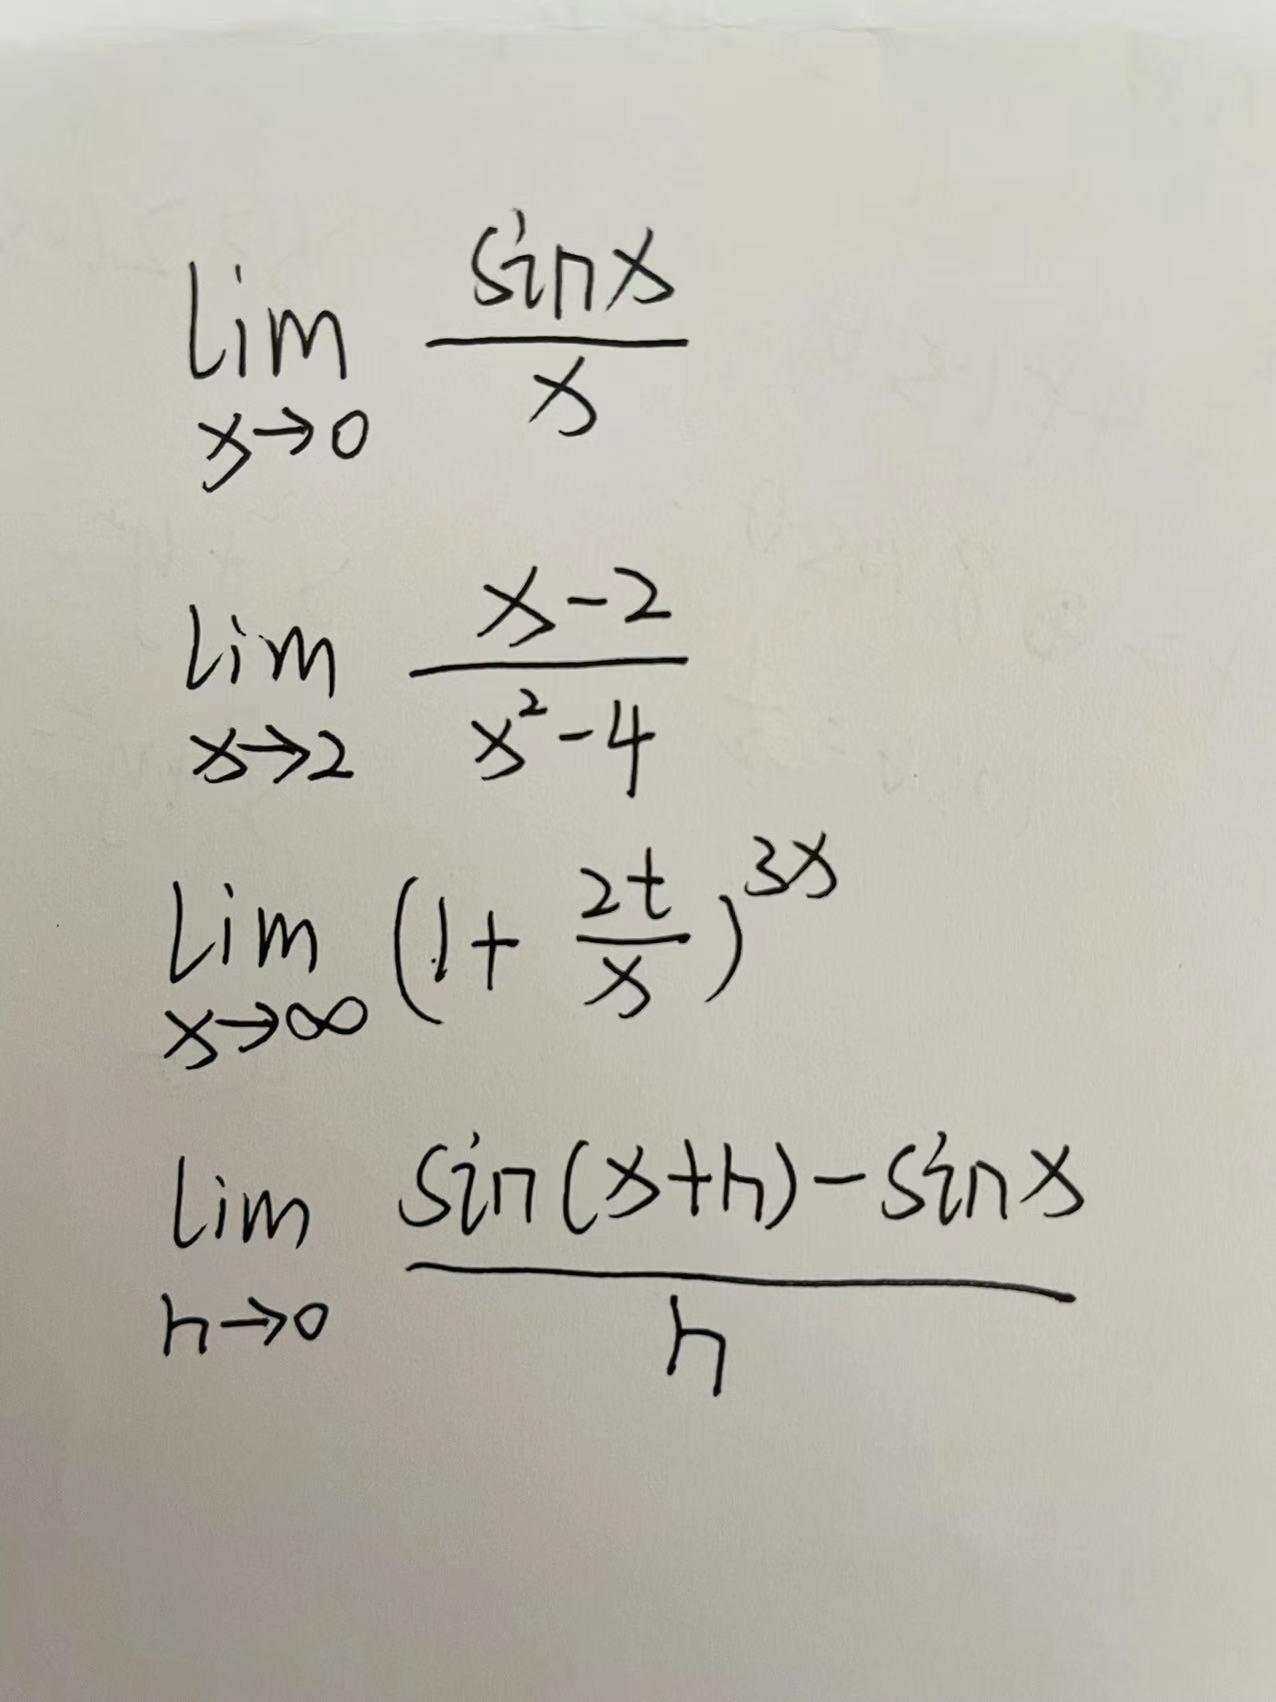 lim x→0 sinx/x
lim x→2 (x-2)/(x²-4)
lim x→∞ (1+2t/x)^3x
lim h→0 (sin(x+h)-sinx)/h